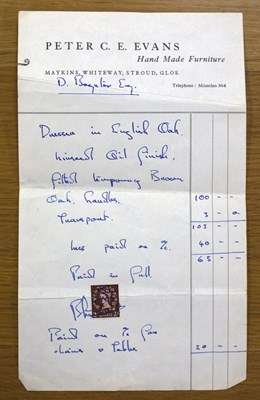 PETER C. E. EVANS
Hand Made Furniture
MAYKINS, WHITEWAY, STROUD, GLOS.
Telephone: Miserden 364
D. Esq.
Dresser in English Oak
Linseed Oil finish,
fitted temporary Brown
Oak handles. 100 -
Transport. 3 - 0
103 -
less paid on 40 -
63 -
Paid in full
Paid on for
chairs & table 20 -